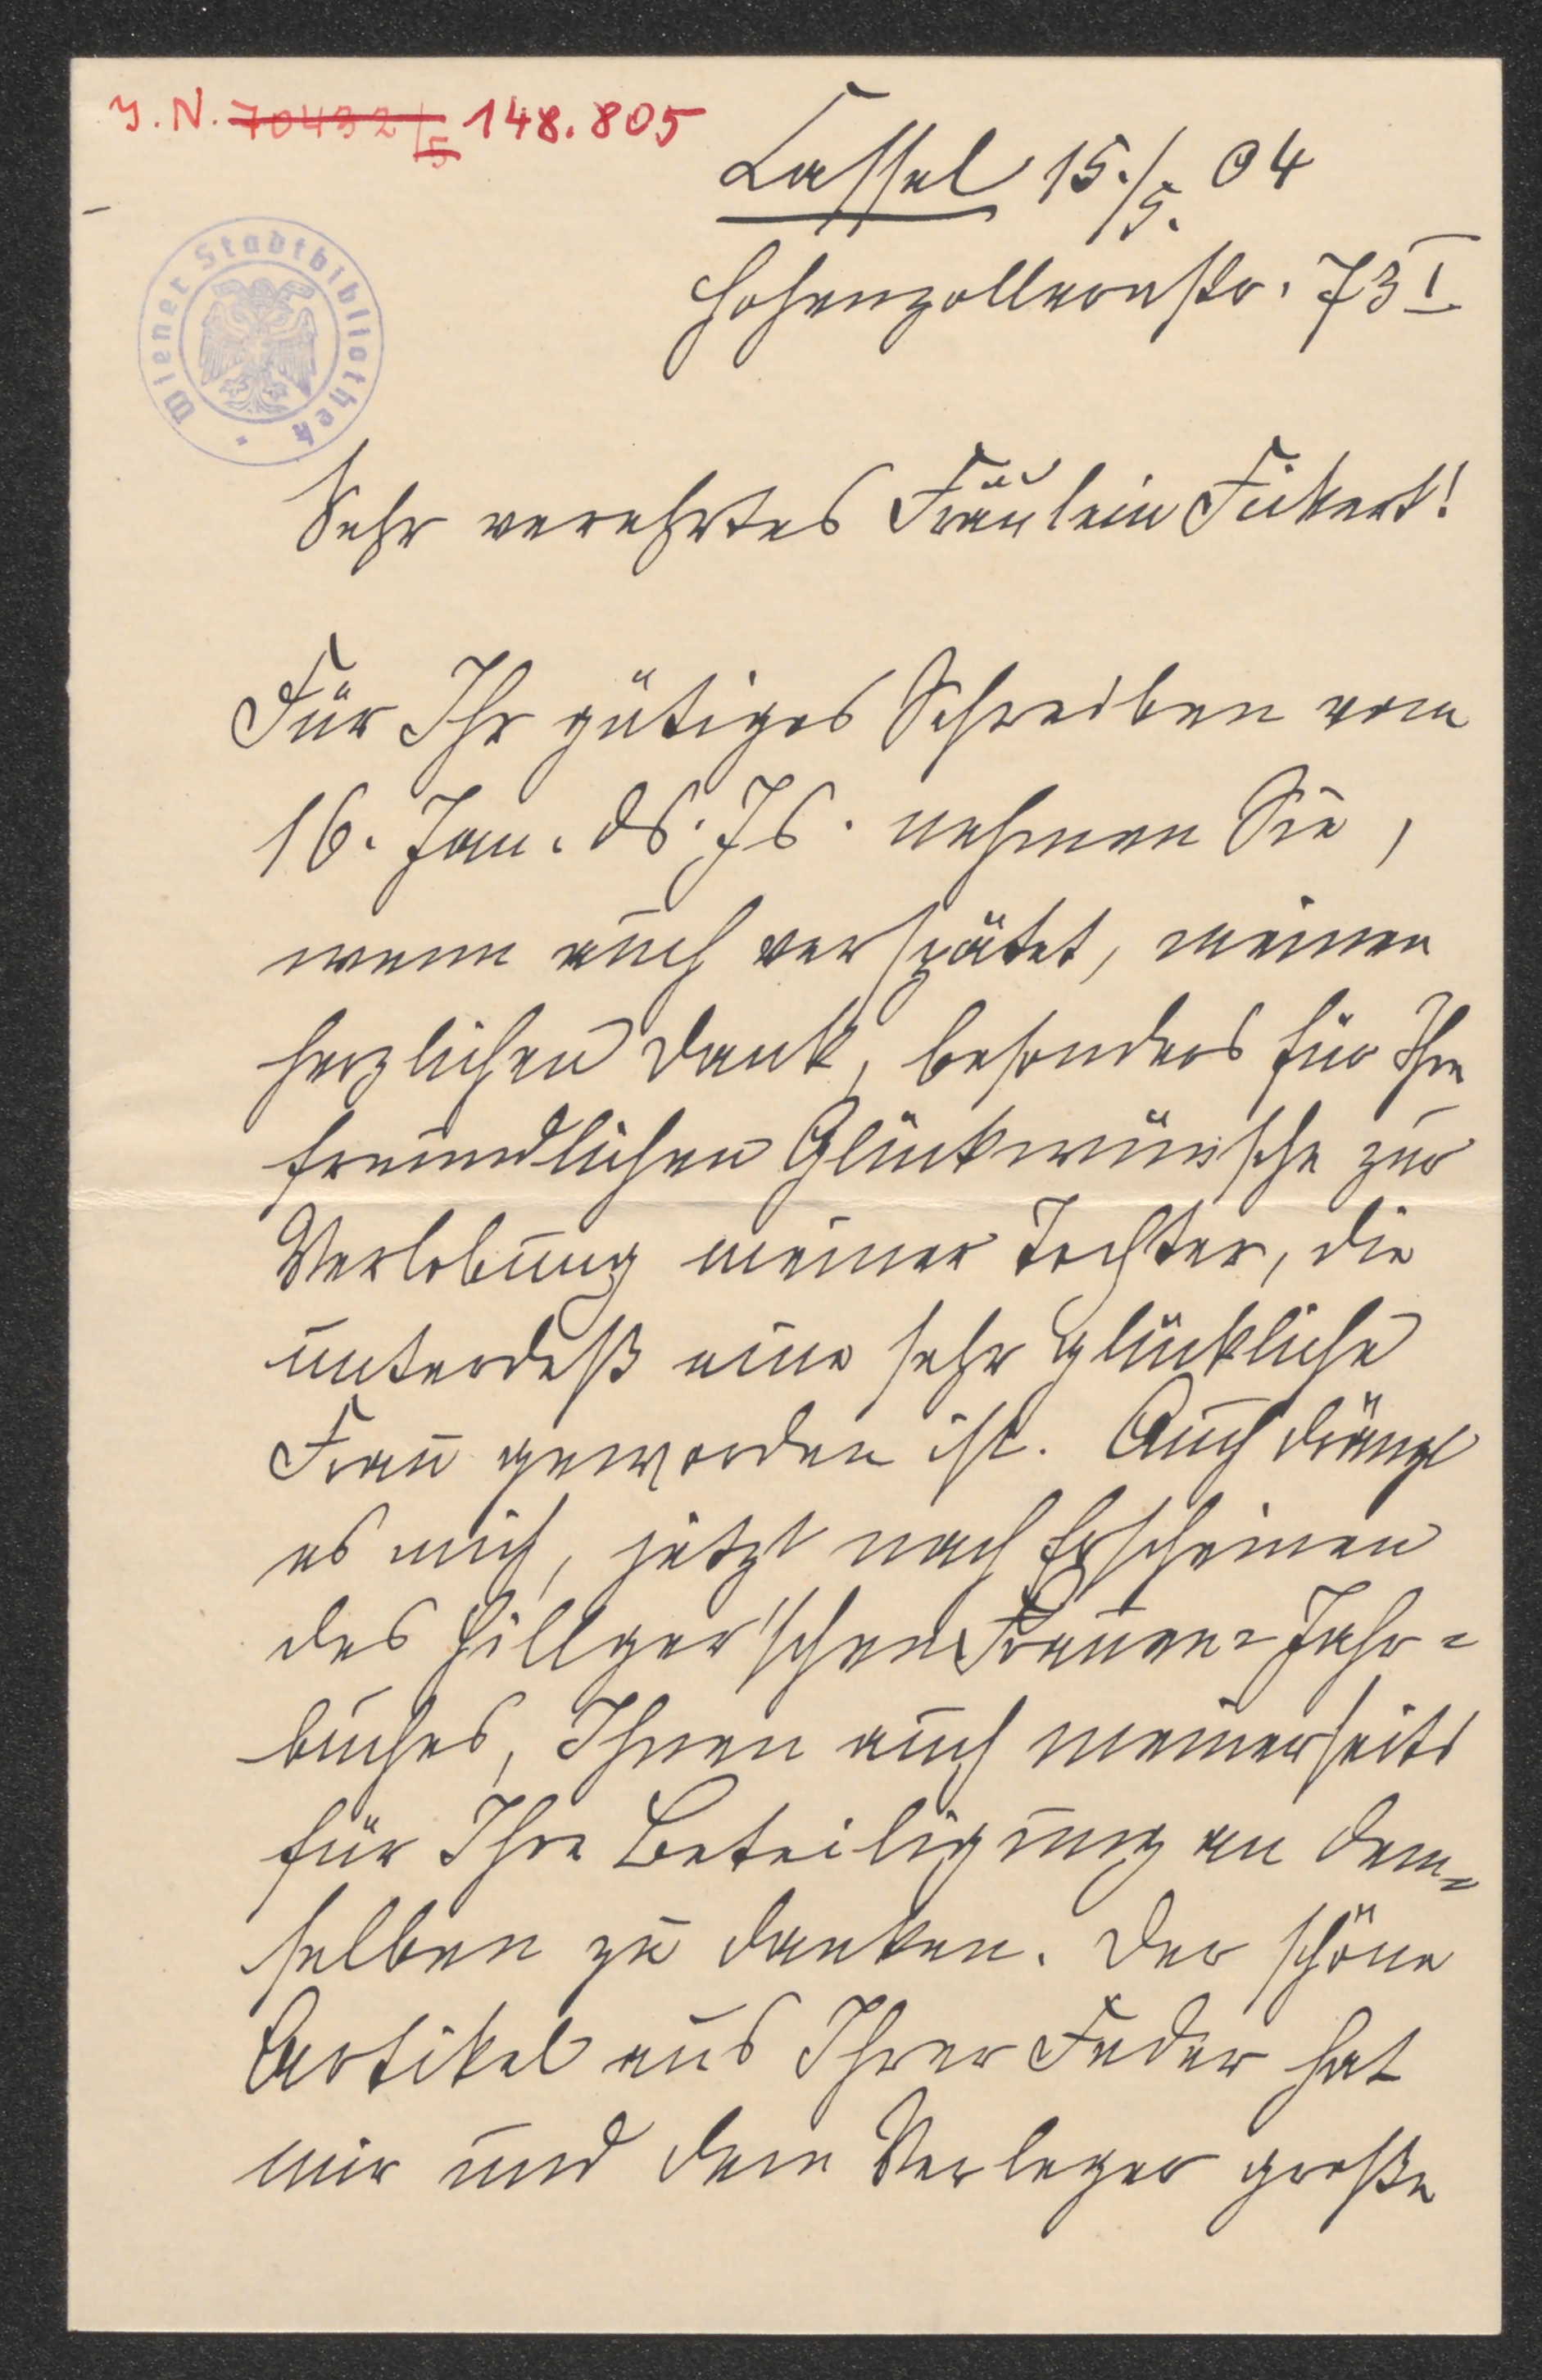 J. N. 70432/5 148.805
Cassel 15./5. 04
Hohenzollernstr. 73 I
Wiener Stadtbibliothek
Sehr verehrtes Fräulein Fickert!
Für Ihr gütiges Schreiben vom
16. Jan. ds. Js. nehmen Sie,
wenn auch verspätet, meinen
herzlichen Dank, besonders für Ihre
freundlichen Glückwünsche zur
Verlobung meiner Tochter, die
unterdeß eine sehr glückliche
Frau geworden ist. Auch drängt
es mich, jetzt nach Erscheinen
des Hillger'schen Frauen-Jahr-
buches, Ihnen auch meinerseits
für Ihre Beteiligung an dem-
selben zu danken. Der schöne
Artikel aus Ihrer Feder hat
mir und dem Verleger große